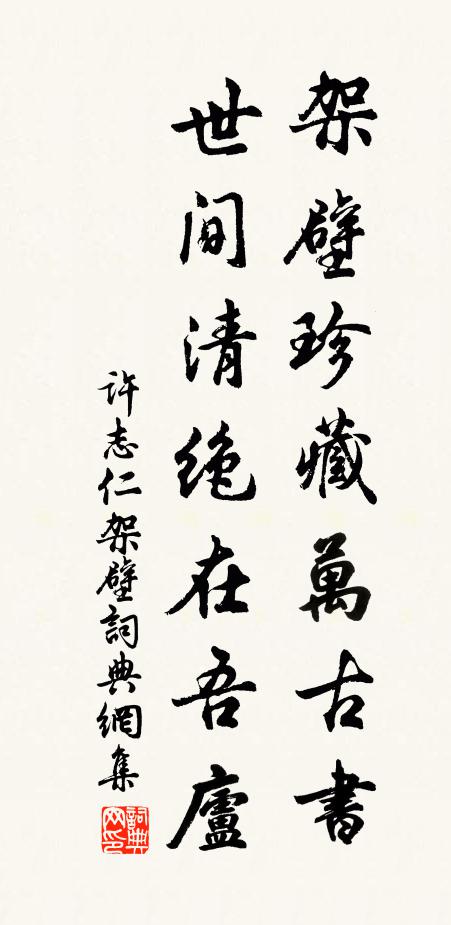 架壁珍藏萬古書
世间清絶在吾廬
許志仁架壁詞典網集
詞典网印